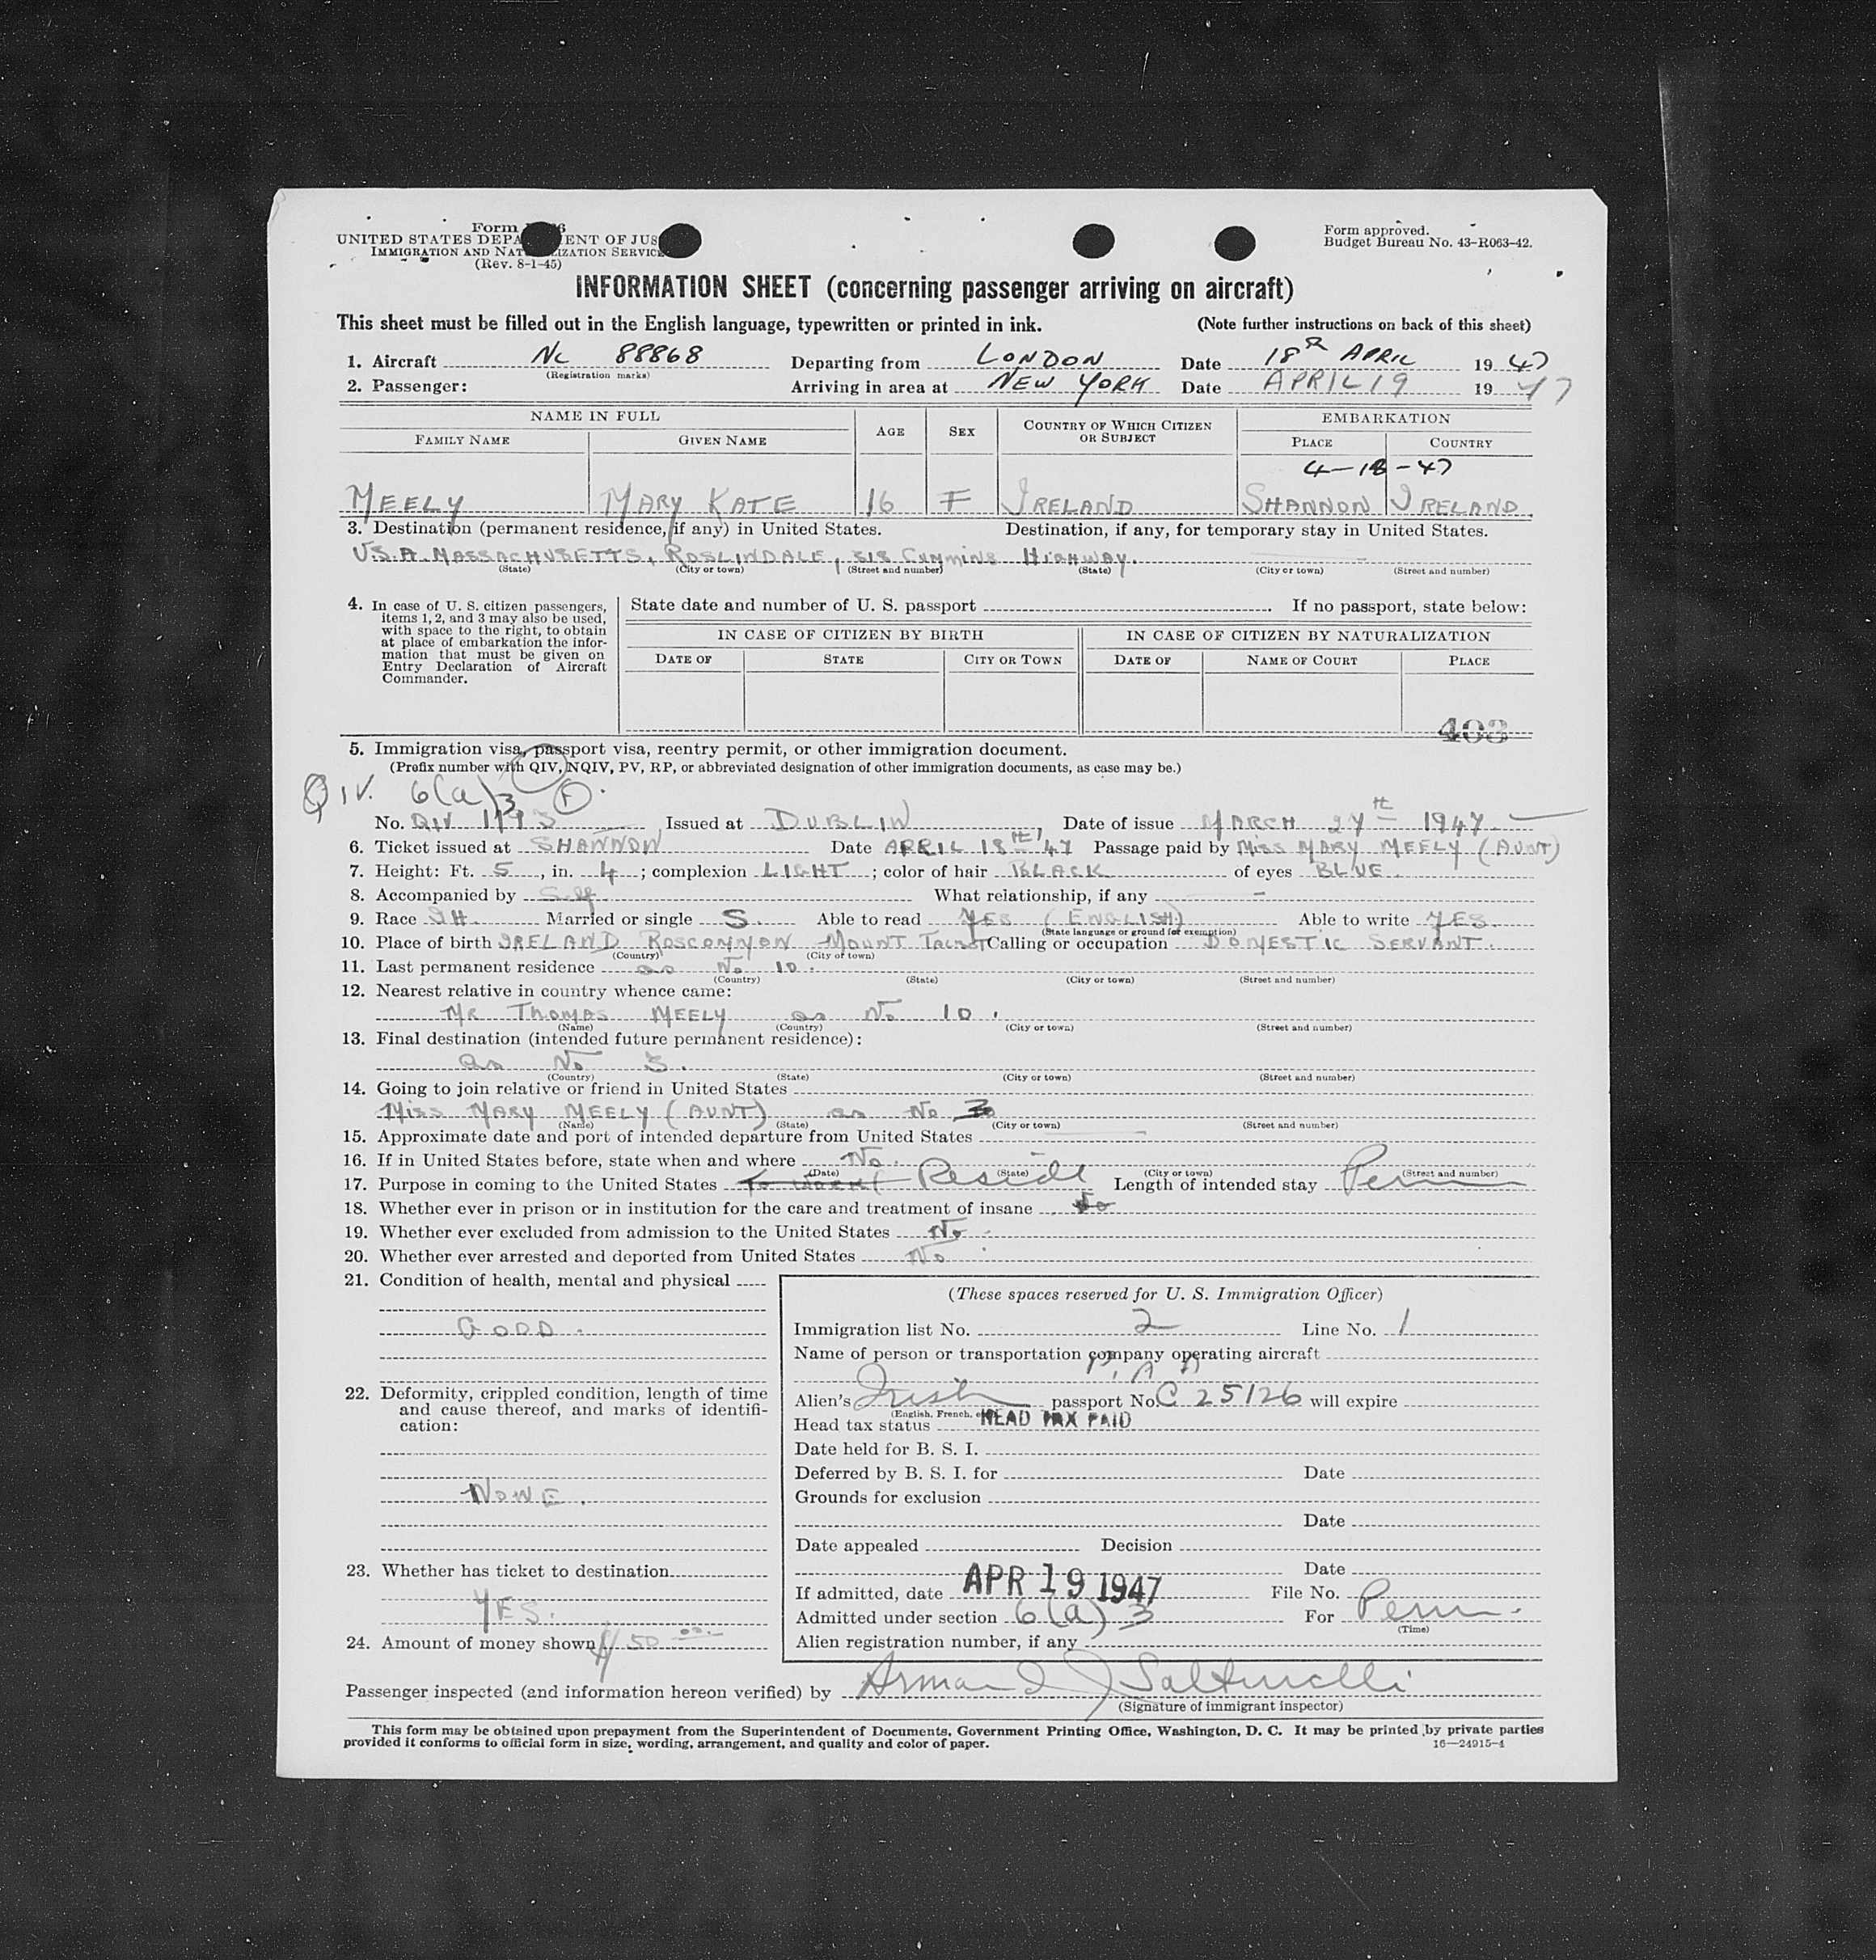 Form
UNITED STATES DEPA ENT OF JUS
IMMIGRATION AND NAT IZATION SERVICE
(Rev. 8-1-45)
Form approved.
Budget Bureau No. 43-R063-42.
INFORMATION SHEET (concerning passenger arriving on aircraft)
This sheet must be filled out in the English language, typewritten or printed in ink. (Note further instructions on back of this sheet)
1. Aircraft NC 88868 Departing from LONDON Date 18th APRIL 19 47
(Registration marks)
2. Passenger: Arriving in area at NEW YORK Date APRIL 19 19 47
NAME IN FULL AGE SEX COUNTRY OF WHICH CITIZEN OR SUBJECT EMBARKATION
FAMILY NAME GIVEN NAME PLACE COUNTRY
4-18-47
MEELY MARY KATE 16 F IRELAND SHANNON IRELAND
3. Destination (permanent residence, if any) in United States. Destination, if any, for temporary stay in United States.
U.S.A. MASSACHUSETTS, ROSLINDALE, 515 CUMMINS HIGHWAY.
(State) (City or town) (Street and number) (State) (City or town) (Street and number)
4. In case of U. S. citizen passengers, items 1, 2, and 3 may also be used, with space to the right, to obtain at place of embarkation the information that must be given on Entry Declaration of Aircraft Commander.
State date and number of U. S. passport . If no passport, state below:
IN CASE OF CITIZEN BY BIRTH IN CASE OF CITIZEN BY NATURALIZATION
DATE OF STATE CITY OR TOWN DATE OF NAME OF COURT PLACE
403
5. Immigration visa, passport visa, reentry permit, or other immigration document.
(Prefix number with QIV, NQIV, PV, RP, or abbreviated designation of other immigration documents, as case may be.)
QIV. 6(a)3 F
No. QIV 1193 Issued at DUBLIN Date of issue MARCH 27th 1947
6. Ticket issued at SHANNON Date APRIL 18TH '47 Passage paid by MISS MARY MEELY (AUNT)
7. Height: Ft. 5, in. 4; complexion LIGHT; color of hair BLACK of eyes BLUE.
8. Accompanied by Self What relationship, if any -
9. Race IH. Married or single S. Able to read YES (ENGLISH) Able to write YES.
(State language or ground for exemption)
10. Place of birth IRELAND ROSCOMMON MOUNT TALBOT Calling or occupation DOMESTIC SERVANT.
(Country) (City or town)
11. Last permanent residence as No 10.
(Country) (State) (City or town) (Street and number)
12. Nearest relative in country whence came:
MR THOMAS MEELY as No 10.
(Name) (Country) (City or town) (Street and number)
13. Final destination (intended future permanent residence):
as No 3.
(Country) (State) (City or town) (Street and number)
14. Going to join relative or friend in United States
MISS MARY MEELY (AUNT) as No 3
(Name) (State) (City or town) (Street and number)
15. Approximate date and port of intended departure from United States
16. If in United States before, state when and where No.
(Date) (State) (City or town) (Street and number)
17. Purpose in coming to the United States To WORK Reside Length of intended stay Perm
18. Whether ever in prison or in institution for the care and treatment of insane No
19. Whether ever excluded from admission to the United States No.
20. Whether ever arrested and deported from United States No
21. Condition of health, mental and physical
GOOD.
22. Deformity, crippled condition, length of time and cause thereof, and marks of identification:
NONE.
23. Whether has ticket to destination
YES.
24. Amount of money shown $50 00
(These spaces reserved for U. S. Immigration Officer)
Immigration list No. 2 Line No. 1
Name of person or transportation company operating aircraft
P.A.A
Alien's Irish passport No. C 25126 will expire
(English, French, etc.)
Head tax status HEAD TAX PAID
Date held for B. S. I.
Deferred by B. S. I. for Date
Grounds for exclusion
Date
Date appealed Decision
Date
If admitted, date APR 19 1947 File No.
Admitted under section 6(a)3 For Perm.
(Time)
Alien registration number, if any
Passenger inspected (and information hereon verified) by Armand J
(Signature of immigrant inspector)
This form may be obtained upon prepayment from the Superintendent of Documents, Government Printing Office, Washington, D. C. It may be printed by private parties
provided it conforms to official form in size, wording, arrangement, and quality and color of paper. 16—24915-4